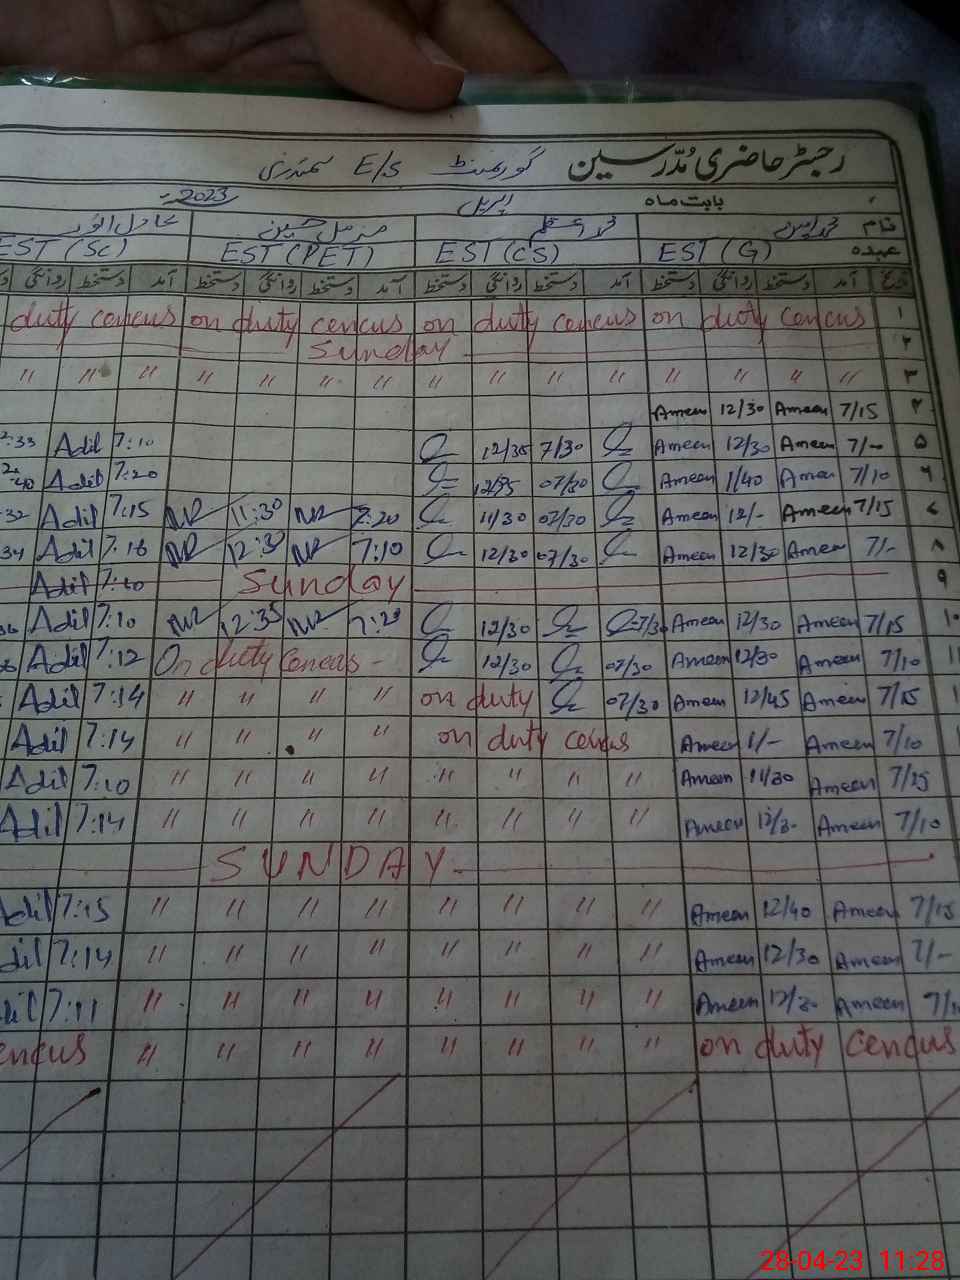 رجسٹر حاضری مُدّرسین گورنمنٹ E/S سمندری
بابت ماہ اپریل 2023ء
نام محمد امین محمد اعظم مزمل حسین عادل انور
عہدہ EST (G) EST (CS) EST (PET) EST (SC)
تاریخ آمد دستخط روانگی دستخط آمد دستخط روانگی دستخط آمد دستخط روانگی دستخط آمد دستخط روانگی
۱ duty cencus on duty cencus on duty cencus on duty cencus
۲ Sunday
۳ 〃 〃 〃 〃 〃 〃 〃 〃 〃 〃 〃 〃 〃 〃 〃
۴ Ameen 12/30 Ameen 7/15
۵ :33 Adil 7:10 12/35 7/30 Ameen 12/30 Ameen 7/-
۶ Adil 7:20 07/30 Ameen 1/40 Ameen 7/10
۷ :32 Adil 7:15 11:30 7:20 11/30 07/30 Ameen 12/- Ameen 7/15
۸ 34 Adil 7:16 12:30 7:10 12/30 07/30 Ameen 12/30 Ameen 7/-
۹ Adil Sunday
۱۰ Adil 7:10 12:35 7:20 12/30 7/30 Ameen 12/30 Ameen 7/15
Adil 7:12 On duty Cencus - 12/30 07/30 Ameen 12/30 Ameen 7/10
Adil 7:14 〃 〃 〃 〃 on duty 07/30 Ameen 12/45 Ameen 7/15
Adil 7:14 〃 〃 〃 〃 on duty cencus Ameen 1/- Ameen 7/10
Adil 7:10 〃 〃 〃 〃 〃 〃 〃 〃 Ameen 11/30 Ameen 7/25
Adil 7:14 〃 〃 〃 〃 〃 〃 〃 〃 Ameen 12/30 Ameen 7/10
SUNDAY
Adil 7:15 〃 〃 〃 〃 〃 〃 〃 〃 Ameen 12/40 Ameen 7/15
dil 7:14 〃 〃 〃 〃 〃 〃 〃 〃 Ameen 12/30 Ameen 7/-
dil 7:11 〃 〃 〃 〃 〃 〃 〃 〃 Ameen 12/30 Ameen 7/1
encus 〃 〃 〃 〃 〃 〃 〃 〃 on duty cencus
28-04-23 11:28